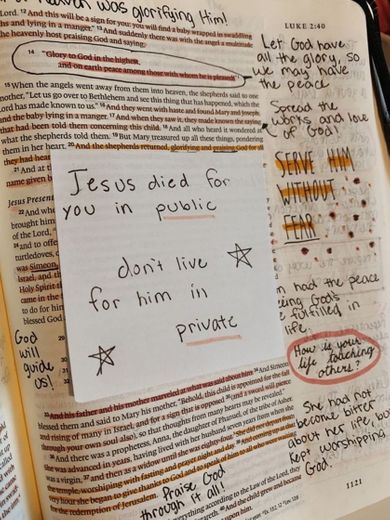 heaven was glorifying Him!
LUKE 2:40
Lord. 12 And this will be a sign for you: you will find a baby wrapped in swaddling
hs and lying in a manger." 13 And suddenly there was with the angel a multitude
the heavenly host praising God and saying,
14 "Glory to God in the highest,
and on earth peace among those with whom he is pleased!"
15 When the angels went away from them into heaven, the shepherds said to one
nother, "Let us go over to Bethlehem and see this thing that has happened, which the
Lord has made known to us." 16 And they went with haste and found Mary and Joseph
and the baby lying in a manger. 17 And when they saw it, they made known the saying
that had been told them concerning this child. 18 And all who heard it wondered at
what the shepherds told them. 19 But Mary treasured up all these things, pondering
them in her heart. 20 And the shepherds returned, glorifying and praising God for
they had hear
21 And at
name given b
Jesus Present
22 And whe
brought him
of the Lord,
and to offe
turtledoves,
was Simeon,
Israel, and
Holy Spirit
came in the
to do for him
blessed God
Let God have
all the glory, so
we may have
the peace.
Spread the
works and love
of God!
SERVE HIM
WITHOUT
FEAR
Jesus died for
you in public
don't live
for him in
private
had the peace
God's
fulfilled in
life.
How is your
life teaching
others?
God
will
guide
us!
29
30
31
32
33 And his father and his mother marveled at what was said about him. 34 And Simeon
blessed them and said to Mary his mother, "Behold, this child is appointed for the fall
and rising of many in Israel, and for a sign that is opposed 35 (and a sword will pierce
through your own soul also), so that thoughts from many hearts may be revealed."
36 And there was a prophetess, Anna, the daughter of Phanuel, of the tribe of Asher.
She was advanced in years, having lived with her husband seven years from when she
was a virgin, 37 and then as a widow until she was eighty-four. She did not depart from
the temple, worshiping with fasting and prayer night and day. 38 And coming up at that
very hour she began to give thanks to God and to speak of him to all who were waiting
for the redemption of Jerusalem.
Praise God
through it all!
She had not
become bitter
about her life, but
kept worshipping
God.
everything according to the Law of the Lord, they
40 And the child grew and became
1121